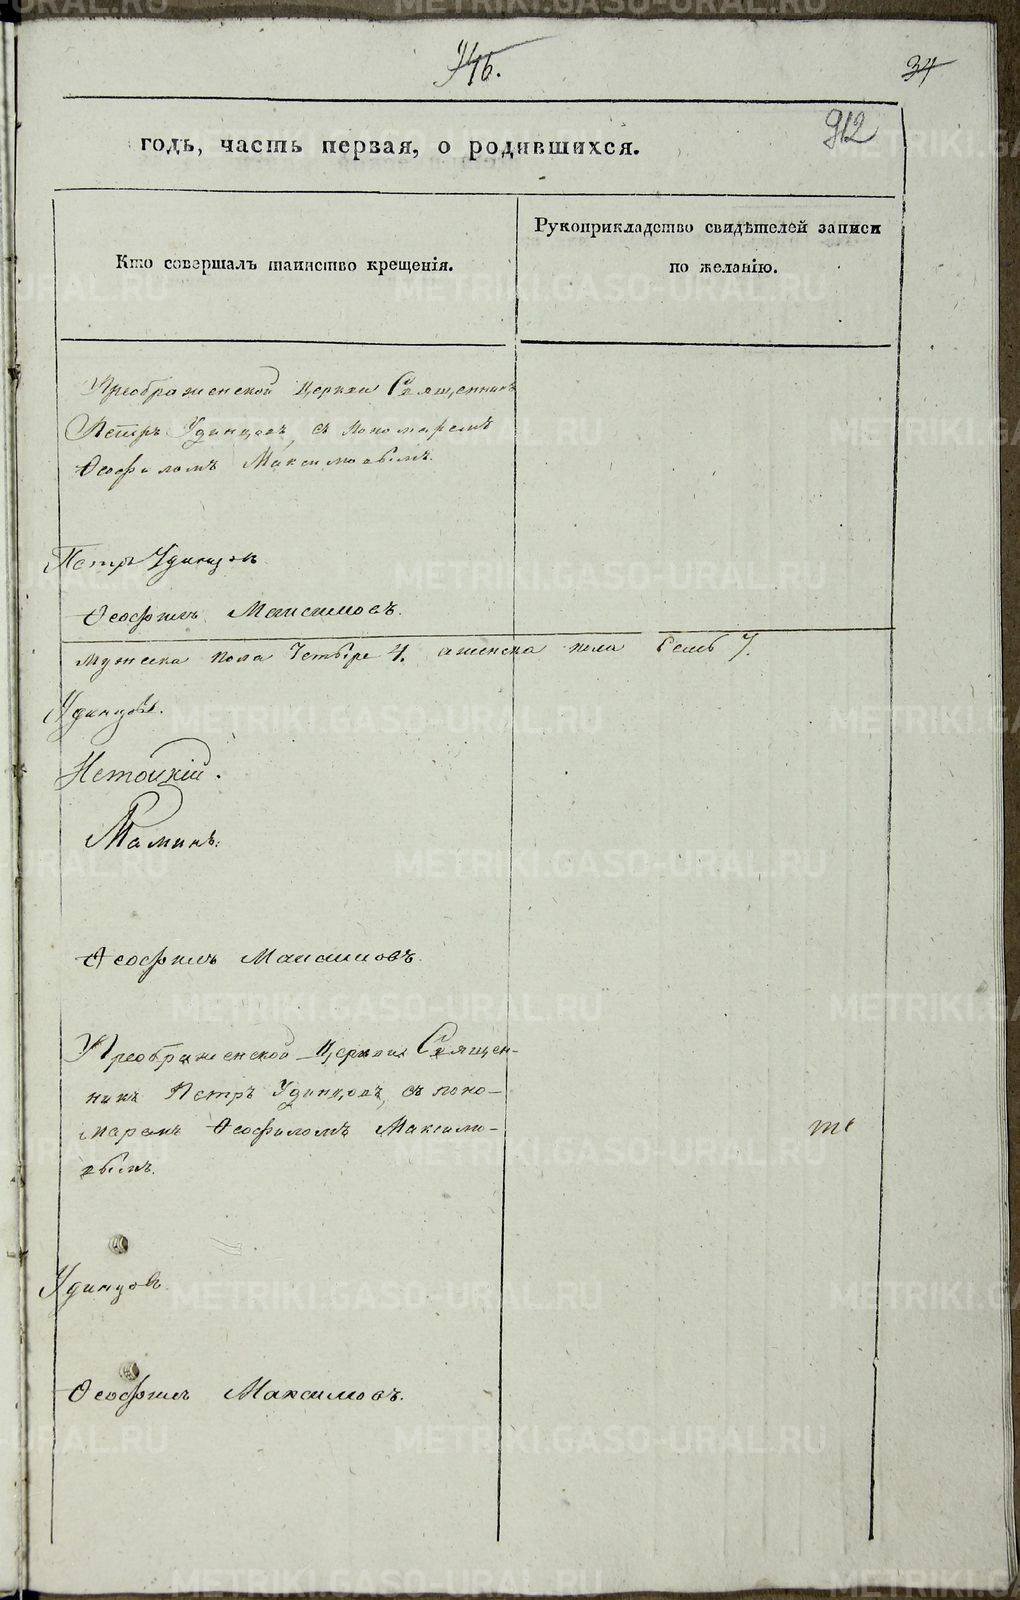 34
912
годъ, часть первая, о родившихся.
Кто совершалъ таинство крещенія.
Рукоприкладство свидѣтелей записи
по желанію.
Преображенской Церкви Священникъ
Петръ Удинцовъ, съ пономаремъ
Ѳеофиломъ Максимовымъ.
Петръ Удинцовъ
Ѳеофилъ Максимовъ.
Мужеска пола четыре 4. женска пола семь 7.
Удинцовъ.
Маминъ.
Ѳеофилъ Максимовъ
Преображенской Церкви Священ-
никъ Петръ Удинцовъ, съ поно-
маремъ Ѳеофиломъ Максимо-
вымъ.
Удинцовъ
Ѳеофилъ Максимовъ.
METRIKI.GASO-URAL.RU